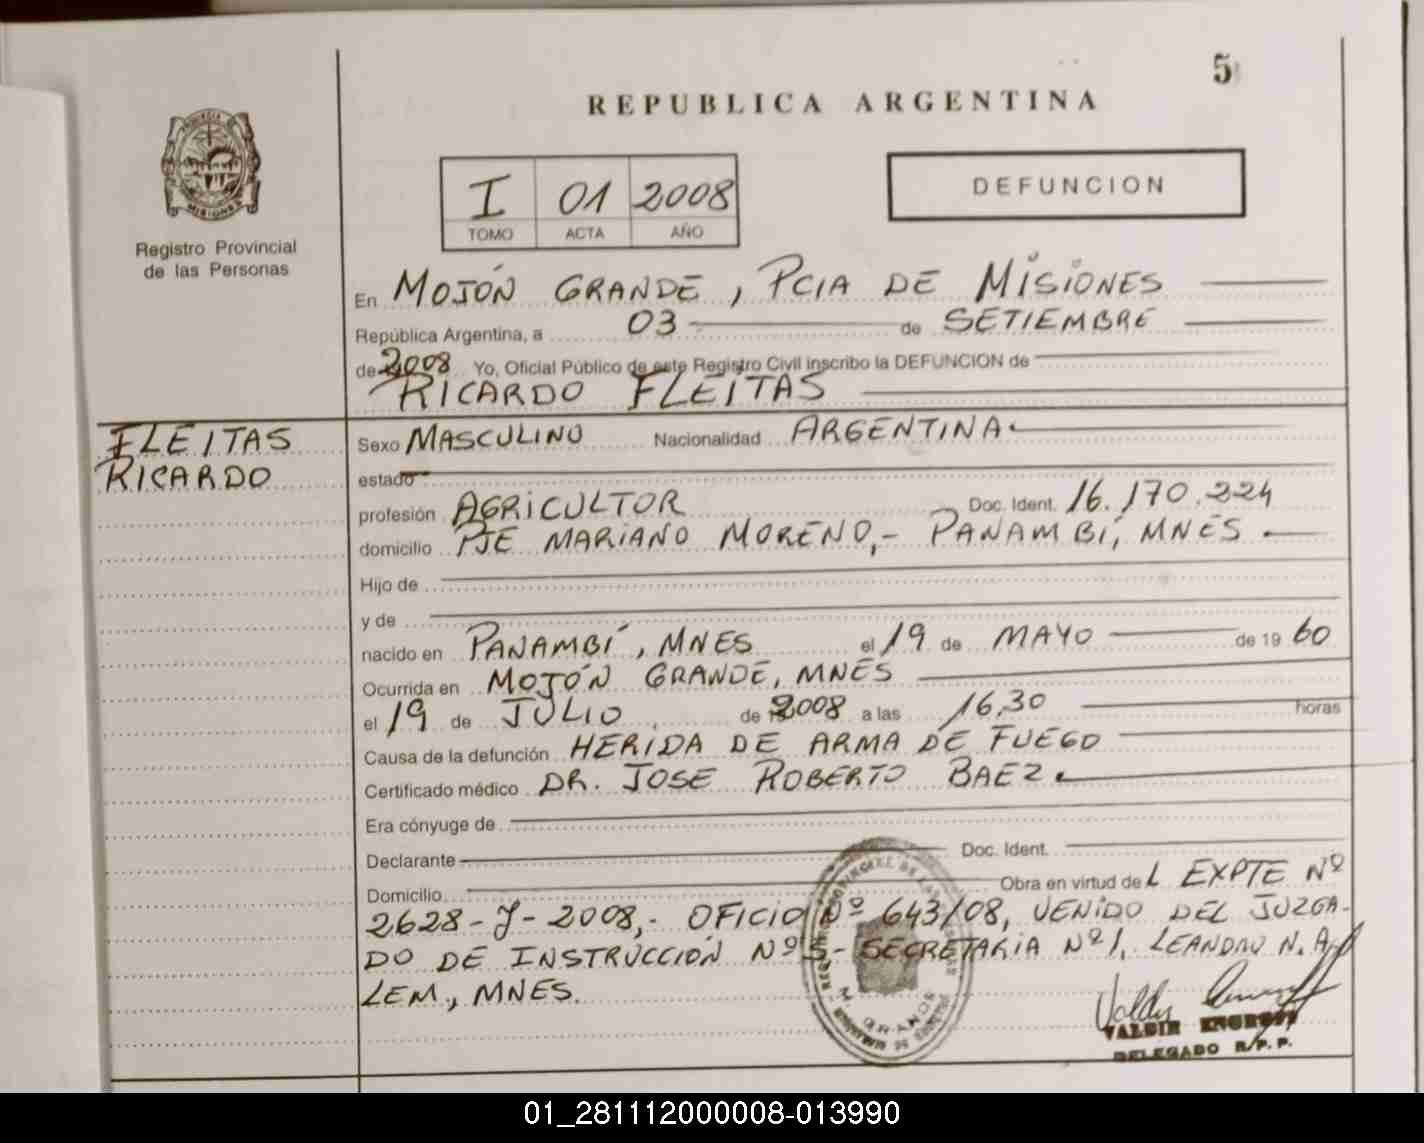 5
REPUBLICA ARGENTINA
PROVINCIA
MISIONES
Registro Provincial
de las Personas
I 01 2008
TOMO ACTA AÑO
DEFUNCION
En MOJÓN GRANDE, PCIA DE MISIONES
República Argentina, a 03 de SETIEMBRE
de 2008 Yo, Oficial Público de este Registro Civil inscribo la DEFUNCION de
RICARDO FLEITAS
FLEITAS
RICARDO
Sexo MASCULINO Nacionalidad ARGENTINA
estado
profesión AGRICULTOR Doc. Ident. 16.170.224
domicilio PJE MARIANO MORENO,- PANAMBÍ, MNES
Hijo de
y de
nacido en PANAMBÍ, MNES el 19 de MAYO de 19 60
Ocurrida en MOJÓN GRANDE, MNES
el 19 de JULIO de 2008 a las 16,30 horas
Causa de la defunción HERIDA DE ARMA DE FUEGO
Certificado médico DR. JOSE ROBERTO BAEZ
Era cónyuge de
Declarante Doc. Ident.
Domicilio Obra en virtud de L EXPTE Nº
2628-J-2008,- OFICIO Nº 643/08, VENIDO DEL JUZGA-
DO DE INSTRUCCIÓN Nº 5,- SECRETARIA Nº 1, LEANDRO N. A
LEM., MNES.
M. GRANDE
DELEGADO R.P.P.
01_281112000008-013990